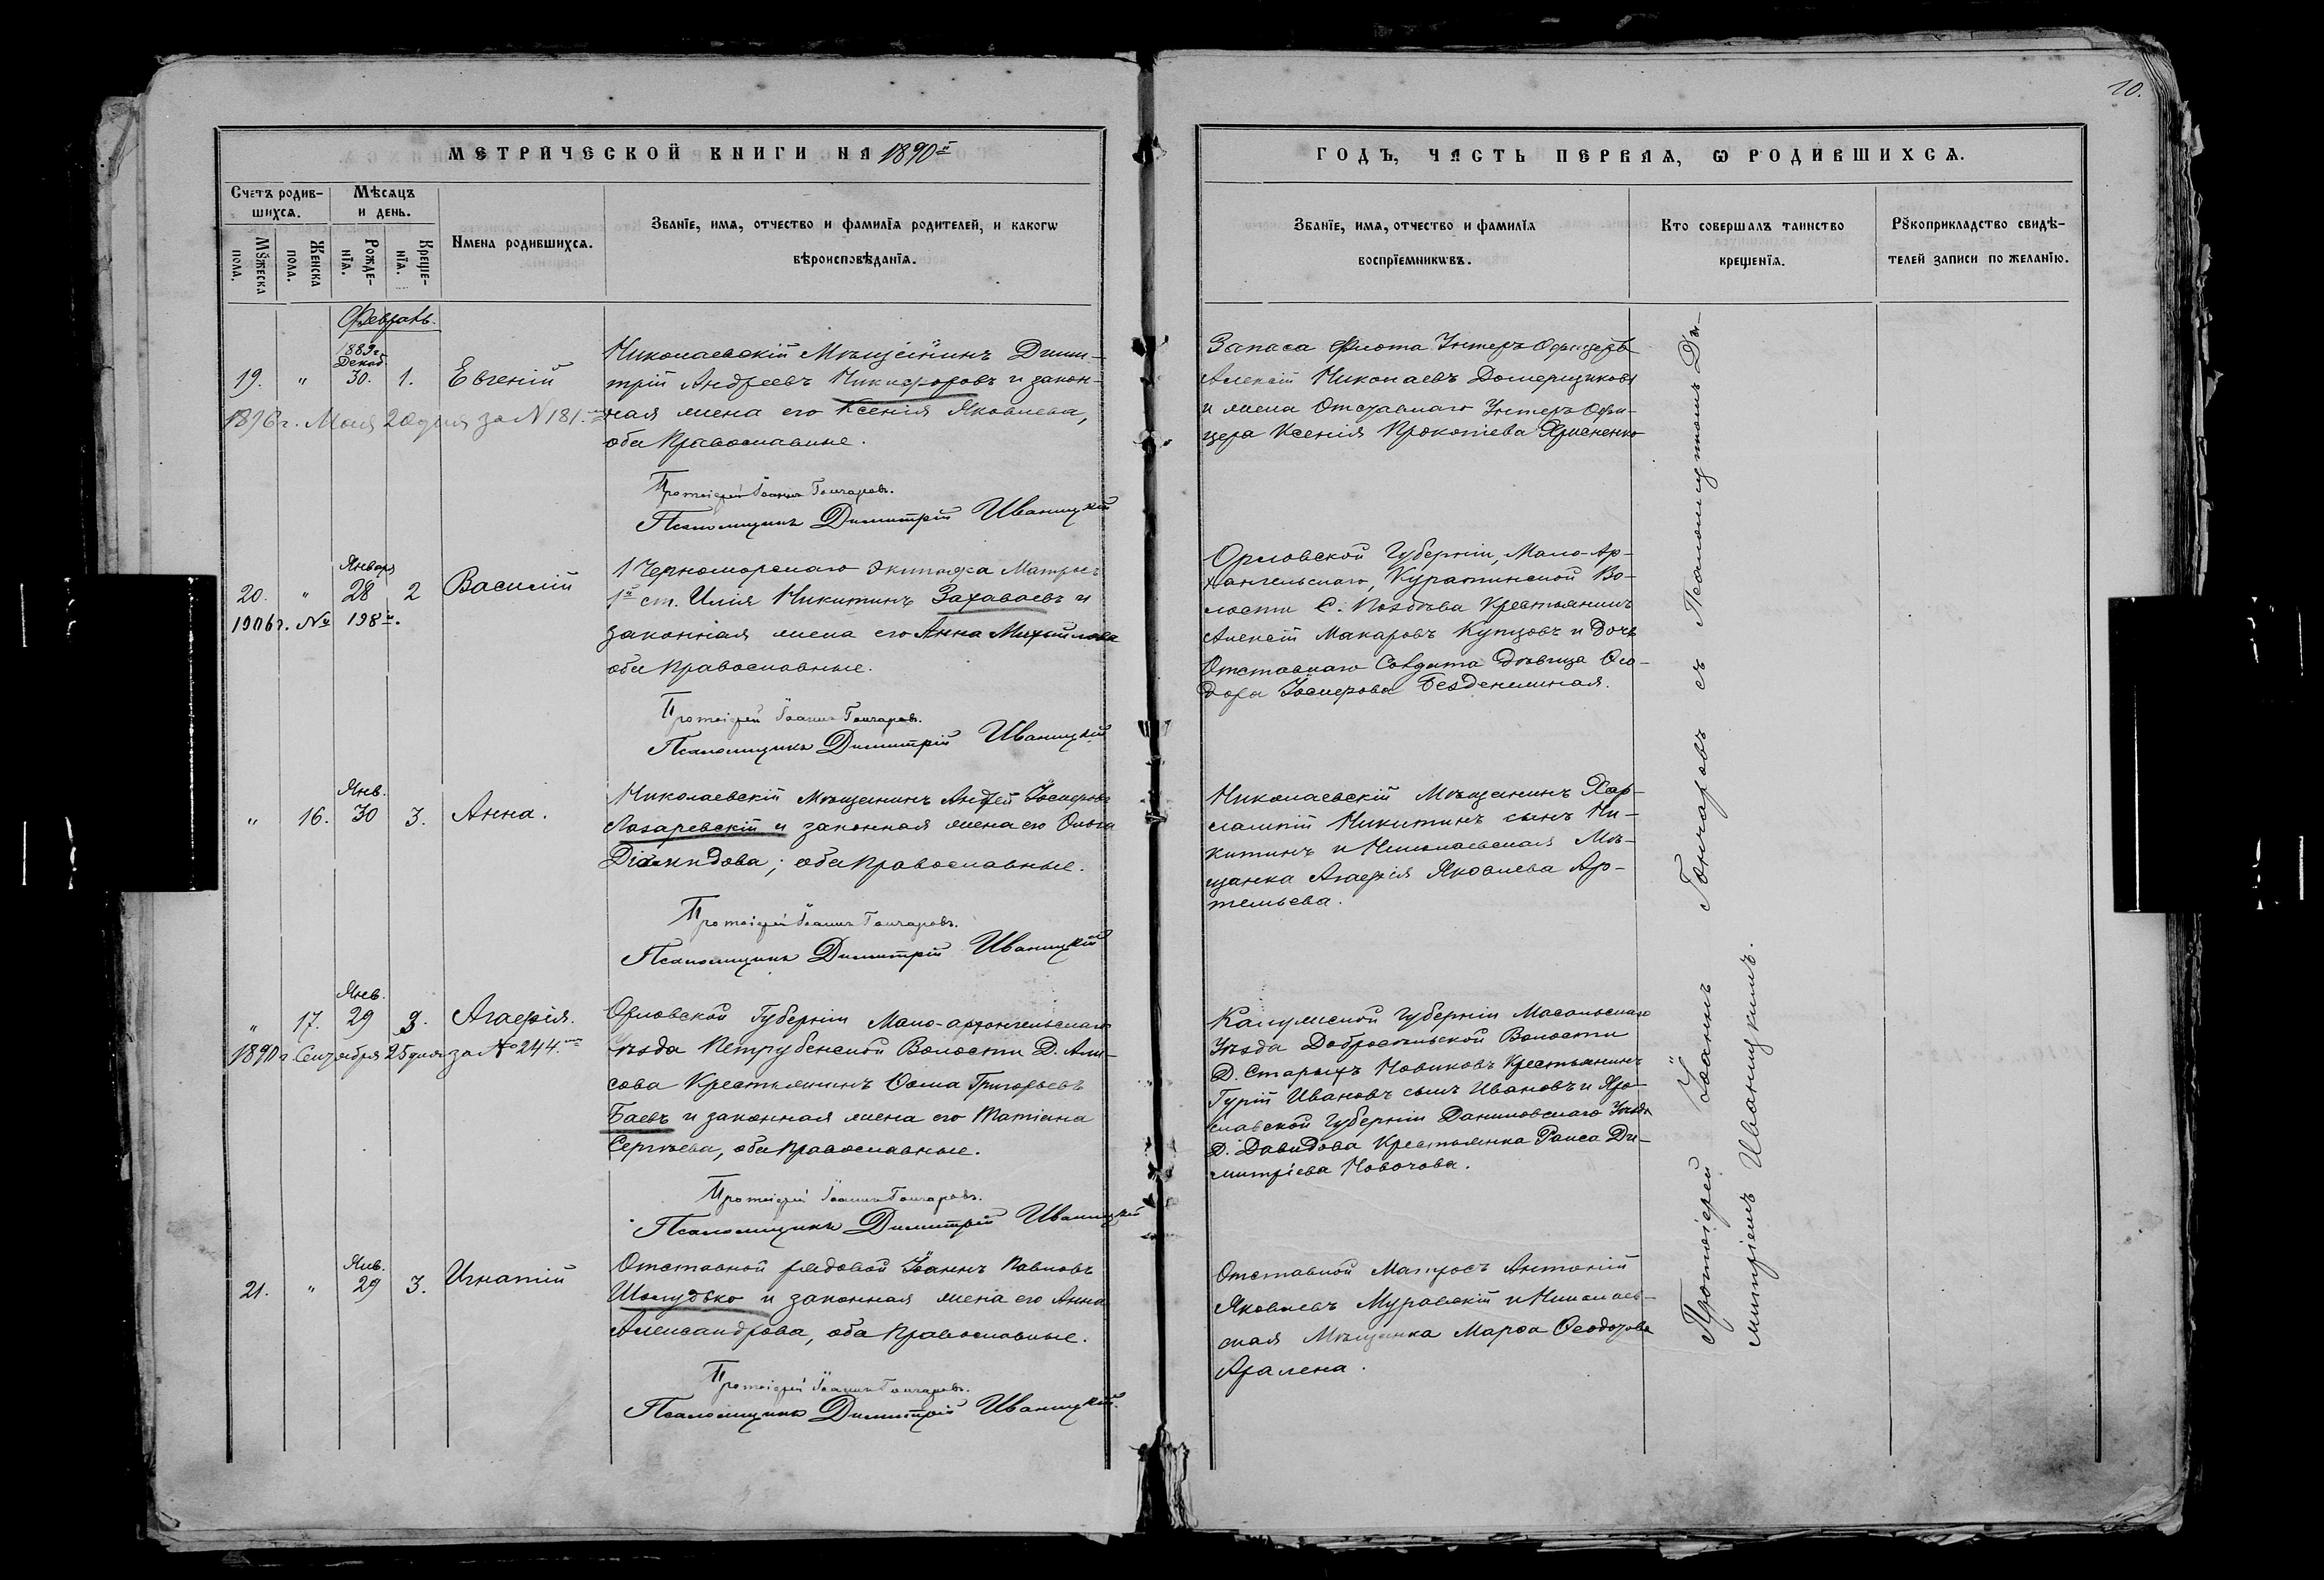 10.
МЕТРИЧЕСКОЙ КНИГИ НА 1890й
ГОДЪ, ЧАСТЬ ПЕРВАЯ, Ѡ РОДИВШИХСѦ.
Счетъ родив-
шихсѧ.
Мѣсѧцъ
и день.
Мꙋжеска
пола.
Женска
пола.
Рожде-
нїѧ.
Креще-
нїѧ.
Имена родившихсѧ.
Званїе, имѧ, отчество и фамилїѧ родителей, и какогѡ
вѣроисповѣданїѧ.
Званїе, имѧ, отчество и фамилїѧ
воспрїемникѡвъ.
Кто совершалъ таинство
крещенїѧ.
Рꙋкоприкладство свидѣ-
телей записи по желанїю.
Февраль.
1889 г.
Декаб.
19. " 30. 1. Евгеній
1896 г. Мая 20 дня за N 181.
Николаевскій Мѣщанинъ Дими-
трій Андреевъ Никифоровъ и закон-
ная жена его Ксенія Яковлева,
оба Православные.
Протоіерей Іоаннъ Гончаровъ.
Псаломщикъ Димитрій Иваницкій
Запаса Флота Унтеръ Офицеръ
Алексій Николаевъ
и жена Отставнаго Унтеръ Офи-
цера Ксенія Прокопіева
Января
20. " 28 2 Василій
1906 г. № 198й.
1 Черноморскаго Экипажа Матросъ
1й ст. Илія Никитинъ Захаваевъ и
законная жена его Анна Михайлова
оба Православные.
Протоіерей Іоаннъ Гончаровъ.
Псаломщикъ Димитрій Иваницкій
Орловской Губерніи, Мало-Ар-
хангельскаго, Куракинской Во-
лости С. Крестьянинъ
Алексій Макаровъ Купцовъ и дочь
Отставнаго Солдата Дѣвица Ѳео-
дора Іосифова Безденежная.
Янв.
" 16. 30 3. Анна.
Николаевскій Мѣщанинъ Андрей Іосифовъ
Лазаревскій и законная жена его Ольга
Діомидова; оба Православные.
Протоіерей Іоаннъ Гончаровъ.
Псаломщикъ Димитрій Иваницкій
Николаевскій Мѣщанинъ Хар-
лампій Никитинъ сынъ Ни-
китинъ и Николаевская Мѣ-
щанка Агафія Яковлева Ар-
темьева.
Янв.
" 17. 29 3. Агафія.
1890 г. Сентября 25 дня за № 244.
Орловской Губерніи Мало-архангельскаго
уѣзда Волости Д. Али-
сова Крестьянинъ Ѳома Григорьевъ
Баевъ и законная жена его Татіана
Сергѣева, оба Православные.
Протоіерей Іоаннъ Гончаровъ.
Псаломщикъ Димитрій Иваницкій
Калужской Губерніи Масальскаго
Уѣзда Волости
Д. Старыхъ Новиковъ Крестьянинъ
Гурій Ивановъ сынъ Ивановъ и Яро-
славской Губерніи Даниловскаго Уѣзда
Д. Давидова Крестьянка Раиса Ди-
митріева
Янв.
21. " 29 3. Игнатій
Отставной рядовой Іоаннъ Павловъ
Шолудько и законная жена его Анна
Александрова, оба Православные.
Протоіерей Іоаннъ Гончаровъ.
Псаломщикъ Димитрій Иваницкій
Отставной Матросъ Антоній
Яковлевъ Муравскій и Николаев-
ская Мѣщанка Марѳа Ѳеодорова
Протоіерей Іоаннъ Гончаровъ съ Псаломщикомъ Ди-
митріемъ Иваницкимъ.